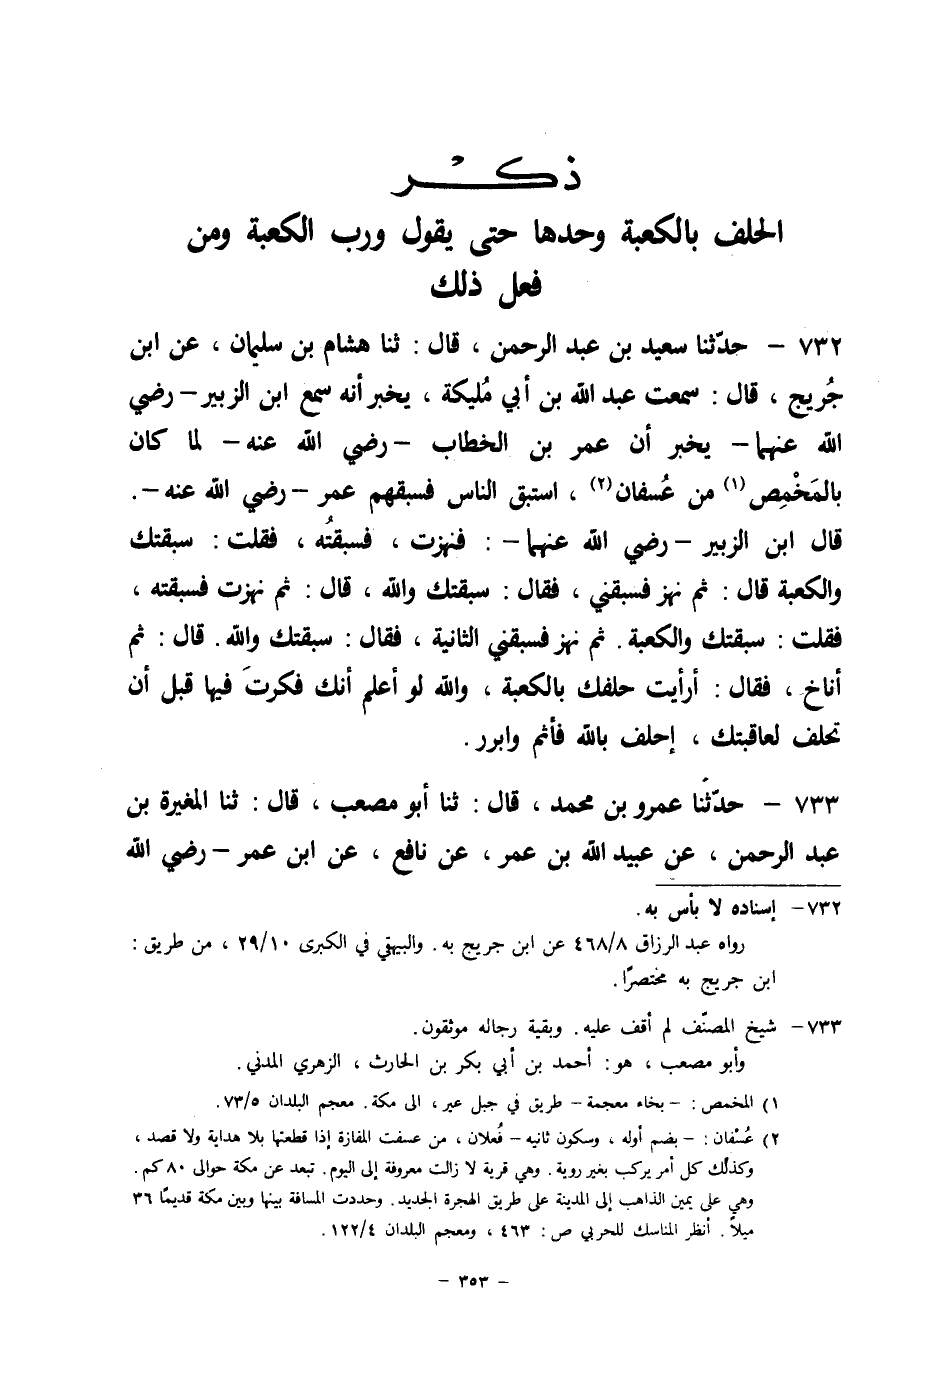 ذكر
الحلف بالكعبة وحدها حتى يقول ورب الكعبة ومن
فعل ذلك
٧٣٢ - حدّثنا سعيد بن عبد الرحمن ، قال : ثنا هشام بن سليمان ، عن ابن
جُريج ، قال : سمعت عبد الله بن أبي مُليكة ، يخبر أنه سمع ابن الزبير - رضي
الله عنهما - يخبر أن عمر بن الخطاب - رضي الله عنه - لما كان
بالمَخْمِص(١) من عُسفان(٢) ، استبق الناس فسبقهم عمر - رضي الله عنه -.
قال ابن الزبير - رضي الله عنهما - : فنهزت ، فسبقتُه ، فقلت : سبقتك
والكعبة قال : ثم نهز فسبقني ، فقال : سبقتك والله ، قال : ثم نهزت فسبقته ،
فقلت : سبقتك والكعبة . ثم نهز فسبقني الثانية ، فقال : سبقتك والله . قال : ثم
أناخ ، فقال : أرأيت حلفك بالكعبة ، والله لو أعلم أنك فكرتَ فيها قبل أن
تحلف لعاقبتك ، إحلف بالله فأثم وابرر .
٧٣٣ - حدّثنا عمرو بن محمد ، قال : ثنا أبو مصعب ، قال : ثنا المغيرة بن
عبد الرحمن ، عن عبيد الله بن عمر ، عن نافع ، عن ابن عمر - رضي الله
٧٣٢ - إسناده لا بأس به .
رواه عبد الرزاق ٤٦٨/٨ عن ابن جريج به . والبيهقي في الكبرى ٢٩/١٠ ، من طريق :
ابن جريج به مختصرًا .
٧٣٣ - شيخ المصنّف لم أقف عليه . وبقية رجاله موثقون .
وأبو مصعب ، هو : أحمد بن أبي بكر بن الحارث ، الزهري المدني .
١) المخمص : - بخاء معجمة - طريق في جبل عير ، الى مكة . معجم البلدان ٧٣/٥ .
٢) عُسْفان : - بضم أوله ، وسكون ثانيه - فُعلان ، من عسفت المفازة إذا قطعتها بلا هداية ولا قصد ،
وكذلك كل أمر يركب بغير روية . وهي قرية لا زالت معروفة إلى اليوم . تبعد عن مكة حوالى ٨٠ كم .
وهي على يمين الذاهب إلى المدينة على طريق الهجرة الجديد . وحددت المسافة بينها وبين مكة قديمًا ٣٦
ميلاً . أنظر المناسك للحربي ص : ٤٦٣ ، ومعجم البلدان ١٢٢/٤ .
- ٣٥٣ -